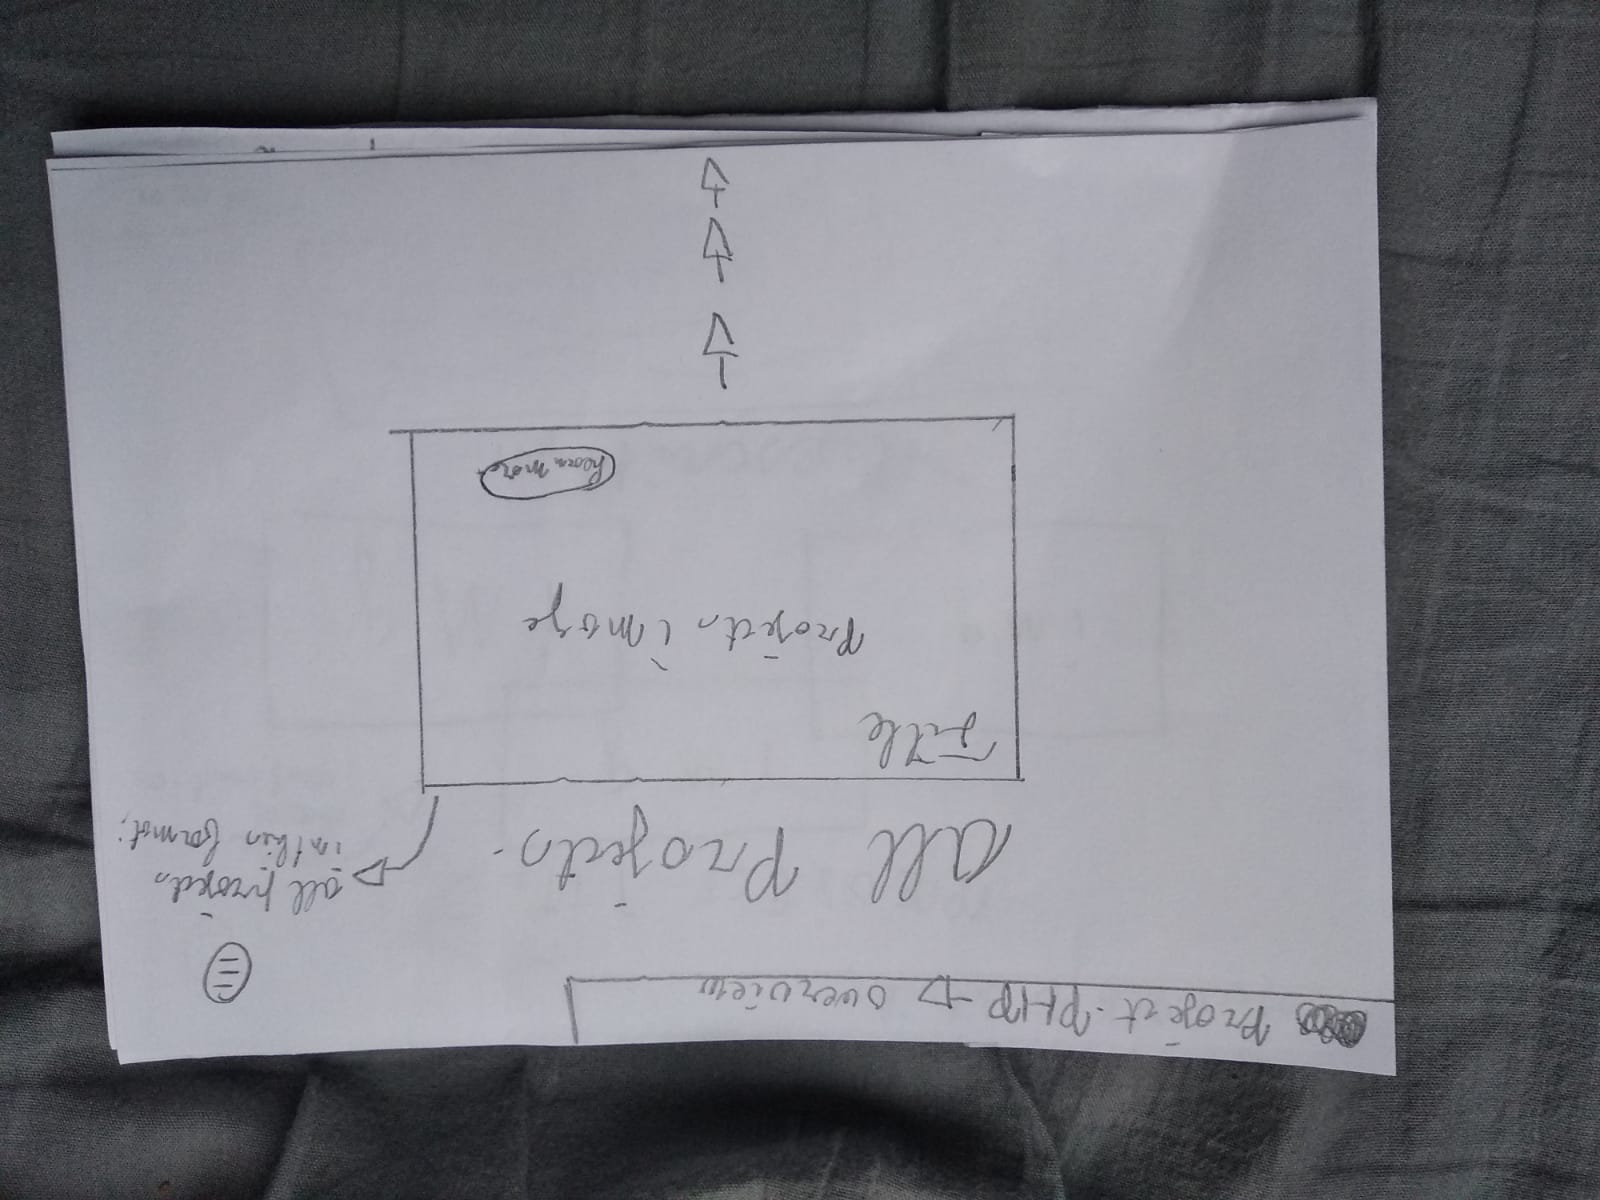 Project.PHP → overview
all Projects.
all projects
in this format;
Title
Projects image
Learn more